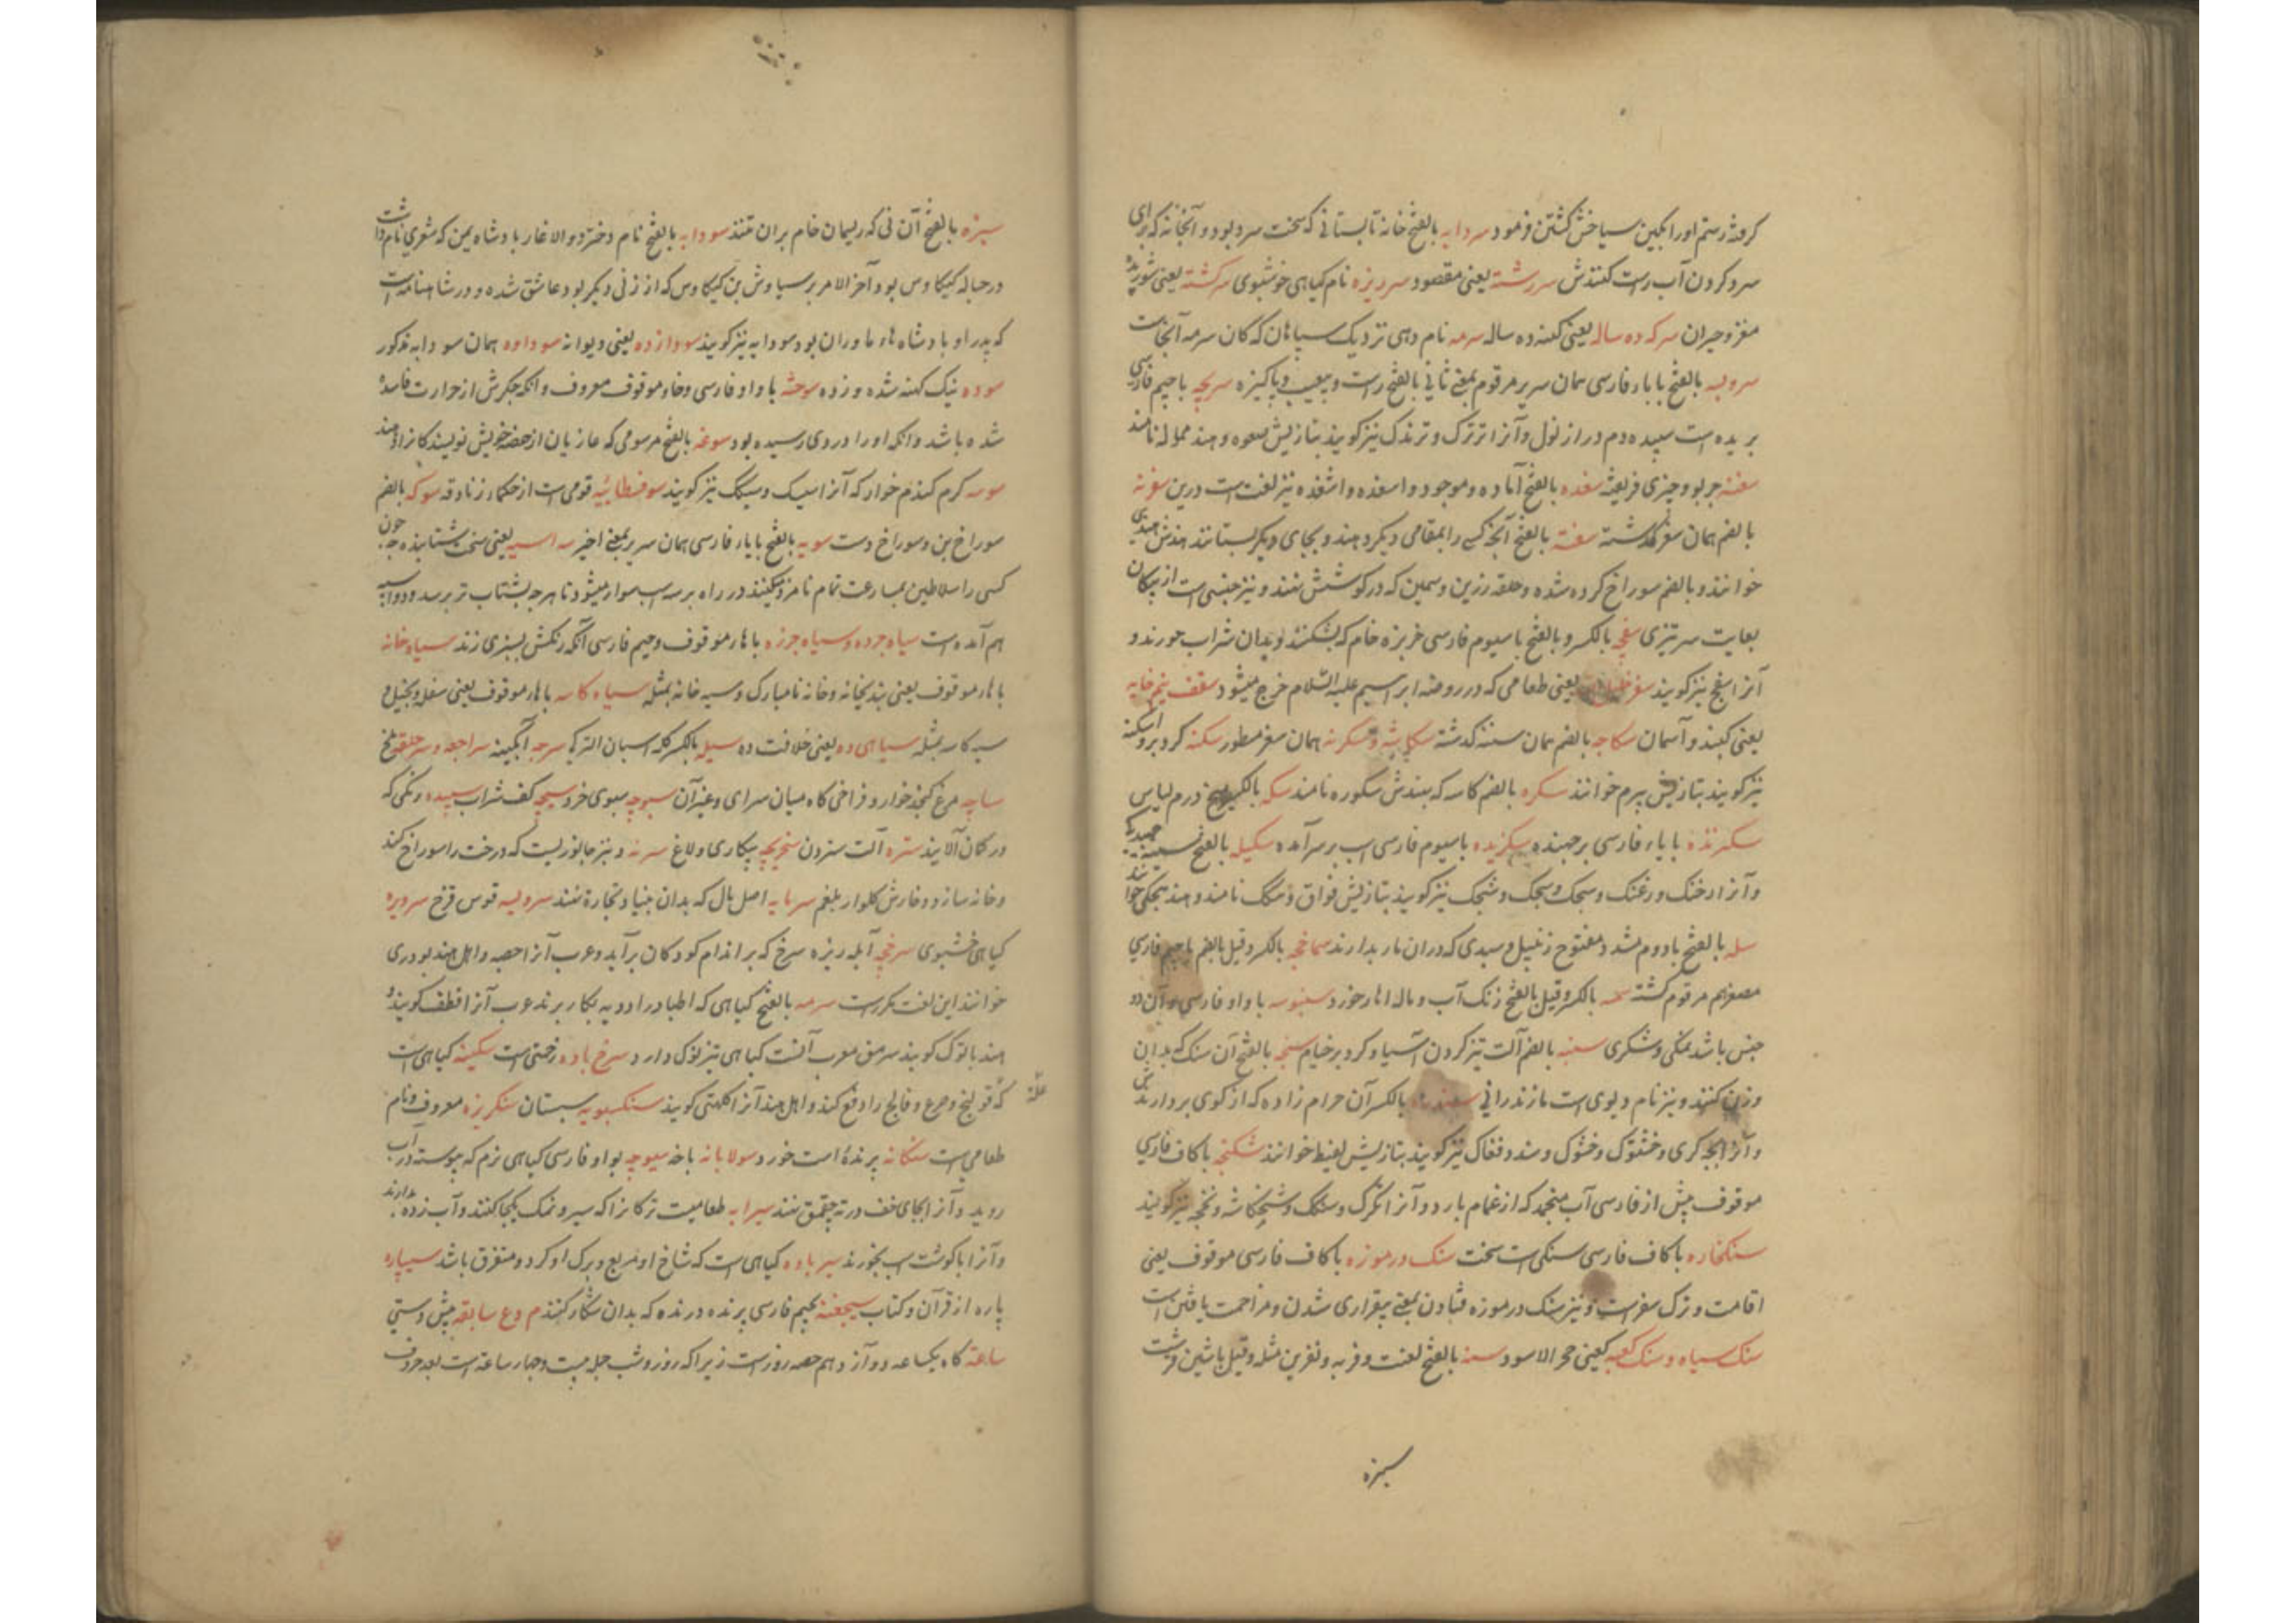 کرفته رستم او را بکین سیاخش کشتن فرمود سردابه بالفتح خانه تابستانی که سخت سرد بود و آنخانه که برای
سرد کردن آب راست کنندش سررشته یعنی مقصود سرریزه نام کیاهی خوشبوی سرکشته یعنی شوریده
مغز و حیران سرکه ده ساله یعنی کهنه ده ساله سرمه نام دهی نزدیک سپاهان که کان سرمه آنجاست
سرویسه بالفتح با باء فارسی همان سریر مرقوم بمعنی ثانی بالفتح راست و بیعیب و پاکیزه سریچه با جیم فارسی
پرنده است سپیده دم دراز نول و آنرا ترترک و ترندک نیز کویند بتازیش صعوه و هند ممولا نامند
سفته چوب و چیزی فریفته سغده بالفتح آماده و موجود و اسغده و اشغده نیز لغت است درین سغرنه
بالضم همان سغر کذشته سفته بالفتح آنچه کسی را بمقامی دیکر دهند و بجای دیکر بستانند هندش هندی
خوانند و بالضم سوراخ کرده شده و حلقه زرین و سیمین که در کوشش کنند و نیز جنسی است از پیکان
بغایت سرتیزی سفچه بالکسر و بالفتح با سیوم فارسی خربزه خام که بشکنند و بدان شراب خورند و
آنرا سفچ نیز کویند سفره خلیل یعنی طعامی که در روضه ابراهیم علیه السلام خرج میشود سقف نیم خایه
یعنی کنبد و آسمان سکاچه بالضم همان ستنه کذشته سکاشه و سکرنه همان سغر مسطور سکنه کرد برو اسکنه
نیز کویند بتازیش بیرم خوانند سکره بالضم کاسه که هندش سکوره نامند سکه بالکسر میخ درم لباس
سکرنده با یاء فارسی برجهنده سکزیده با سیوم فارسی اسب برسر آمده سکیله بالفتح
و آنرا رخنک و رغنک و سجک و سحک و شجک نیز کویند بتازیش فواق و هکک نامند و هند هچکی خوانند
سله بالفتح با دوم مشدد مفتوح زنبیل و سبدی که دران مار بدارند سماخچه بالکسر و قیل بالضم با جیم فارسی
مصغر هم مرقوم کشته سمه بالکسر و قیل بالفتح زنک آب و ماله اهار خورد سنبوسه با واو فارسی و آن دو
جنس باشد نمکی و شکری سنبه بالضم آلت تیز کردن آسیا و کرد بر خیام سنجه بالفتح آن سنک که بدان
وزن کنند و نیز نام دیوی است مازندرانی سندره بالکسر آن حرام زاده که از کوی بردارند
و آنرا بچه کری و خشتوک و خشوک و سند و فغاک نیز کویند بتازیش لقیط خوانند شکنجه با کاف فارسی
موقوف پیش از فارسی آب منجمد که از غمام بارد و آنرا تکرک و سنکک و شخکاشه و یخچه نیز کویند
سنکخاره با کاف فارسی سنکی است سخت سنک در موزه با کاف فارسی موقوف یعنی
اقامت و ترک سفر است و نیز سنک در موزه فتادن بمعنی بیقراری شدن و مزاحمت یافتن است
سنک سیاه و سنک کعبه یعنی حجر الاسود سنه بالفتح لعنت و فریه و نفرین مثله و قیل با شین قرشت
سبزه
سبزه بالفتح آن نی که ریسمان خام بران تنند سودابه بالفتح نام دختر ذوالاغار بادشاه یمن که شعری نام داشت
در حباله کیکاوس بود آخر الامر بر سیاوش بن کیکاوس که از زنی دیکر بود عاشق شده و در شاهنامه است
که پدر او بادشاه هاماوران بود و سودابه نیز کویند سودازده یعنی دیوانه سوداوه همان سودابه مذکور
سوده نیک کهنه شده و زده سوخته با واو فارسی و خاء موقوف معروف و آنکه جکرش از حرارت فاسده
شده باشد و آنکه او را دردی رسیده بود سوغه بالفتح مرسومی که عازیان از حصه خویش نویسندکانرا دهند
سوسه کرم کندم خوار که آنرا سپک و سبک نیز کویند سوفسطائیه قومی است از حکماء زنادقه سوکه بالضم
سوراخ بن و سوراخ دست سویه بالفتح با یاء فارسی همان سریر بمعنی اخیر سه اسپه یعنی سخت شتابنده چون
کسی را سلاطین بمسارعت تمام نامزد میکنند در راه بر سه اسپ سوار میشود تا هرچه بشتاب تر برسد و دو اسپه
هم آمده است سیاه جرده و سیاه جرزه با هاء موقوف و جیم فارسی آنکه رنکش بسبزی زند سیاه خانه
با هاء موقوف یعنی بندیخانه و خانه نامبارک و سیه خانه بمثله سیاه کاسه با هاء موقوف یعنی سفله و بخیل و
سیه کاسه بمثله سیاهی ده یعنی خلافت ده سیله بالکسر کله اسپان الترکی سرجه آبکینه سراجعه و سرحلقه
ساچه مرغ کنجد خوار و فراخی کاه میان سرای و غیر آن سبوچه سبوی خرد سیجه کف شراب سپیده رنکی که
در کمان آلایند ستره آلت ستردن سخریچه بیکاری و لاغ سرنه و نیز جانوریست که درخت را سوراخ کند
و خانه سازد و خارش کلوار بلغم سرمایه اصل مال که بدان بنیاد تجارة نهند سرویسه قوس قزح سریزه
کیاهی خشبوی سرخچه آبله ریزه سرخ که بر اندام کودکان برآید و عرب آنرا حصبه و اهل هند بودری
خوانند این لغت مکررست سرمه بالفتح کیاهی که اطبا در ادویه بکار برند عرب آنرا قطف کویند و
هند باتوک کویند سرمق معرب آنست کیاهی تیز نوک دارد سرخ باده زحمتی است سکبینه کیاهی است
که قولنج و صرع و فالج را دفع کند و اهل هند آنرا کلهتی کویند سنکسبویه سبستان سنکریزه معروف و نام
طعامی است سنکانه پرنده است خورد سولابانه باخه سیوچه بواو فارسی کیاهی نرم که پیوسته در آب
روید و آنرا بجای خف در ته چقمق نهند سیرابه طعامیست ترکانرا که سیر و نمک یکجا کنند و آب زده بدارند
و آنرا با کوشت اسپ بخورند سیر باده کیاهی است که شاخ او مربع و برک او کرد و متفرق باشد سیپاره
پاره از قرآن و کتاب سیچغنه بجیم فارسی پرنده درنده که بدان شکار کنند م وع سابقه پیش دستی
ساعة کاه یکساعه دوآزدهم حصه روز است زیرا که روز و شب جمله بیست و چهار ساعة است بعد حروف